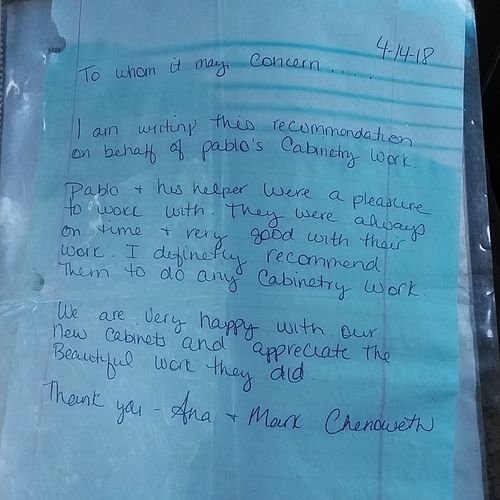 4-14-18
To whom it may concern.....
I am writing this recommondation
on behalf of pablo's Cabinetry work.
Pablo + his helper were a pleasure
to work with. They were always
on time + very good with their
work. I definetly recommend
them to do any Cabinetry work.
We are very happy with our
new cabinets and appreciate the
Beautiful work they did.
Thank you - Ana + Mark Chenoweth